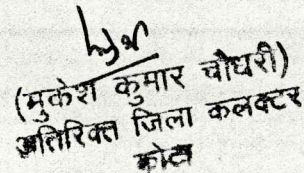 (मुकेश कुमार चौधरी)
अतिरिक्त जिला कलक्टर
कोटा